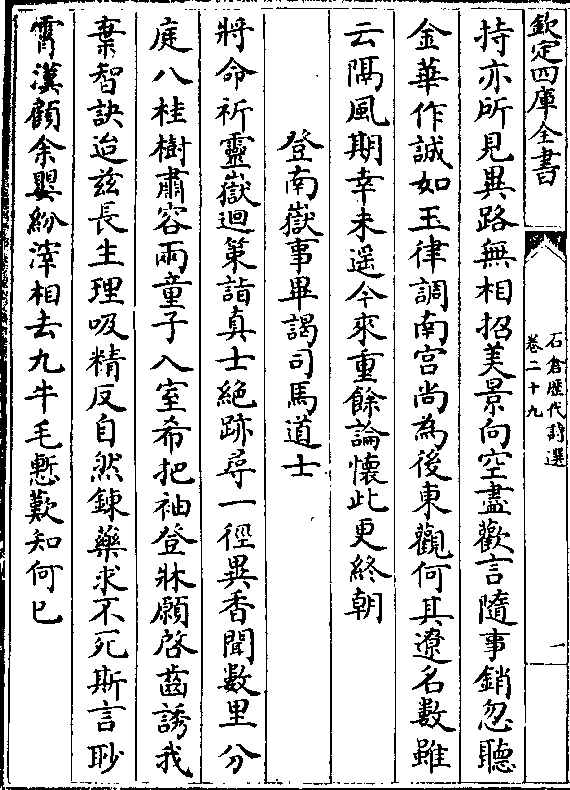 欽定四庫全書
石倉歴代詩選
卷二十九
一
持亦所見異路無相招美景向空盡歡言隨事銷忽聽
金華作誠如玉律調南宮尚為後東觀何其遼名數雖
云隔風期幸未遥今來重餘論懷此更終朝
登南嶽事畢謁司馬道士
將命祈靈嶽迴策詣真士絶跡尋一徑異香聞數里分
庭八桂樹肅容兩童子入室希把袖登牀願啓齒誘我
棄智訣迨兹長生理吸精反自然鍊藥求不死斯言眇
霄漢顧余嬰紛滓相去九牛毛慙歎知何已